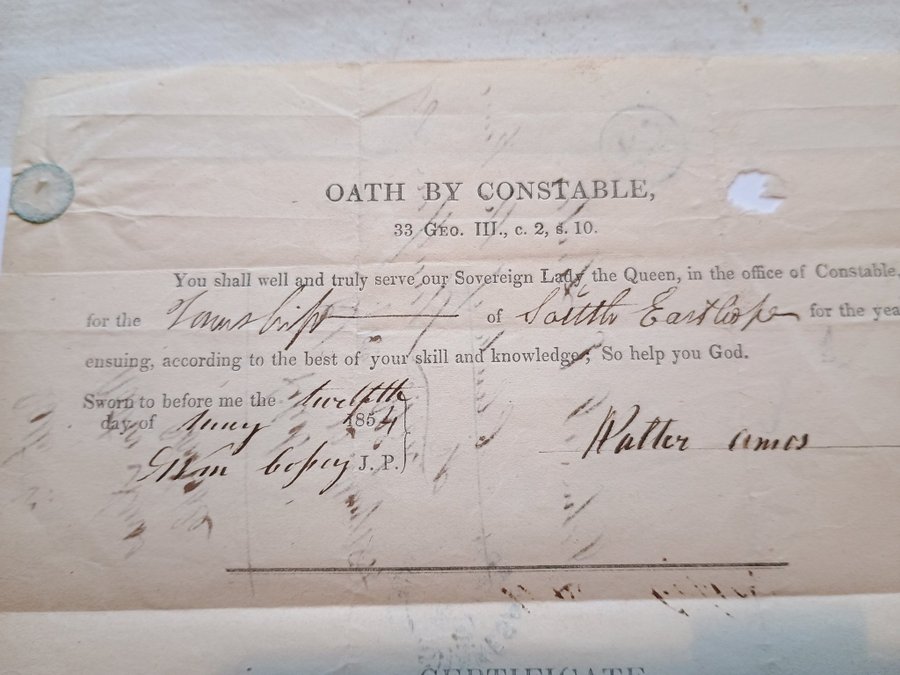 OATH BY CONSTABLE,
33 GEO. III., c. 2, s. 10.
You shall well and truly serve our Sovereign Lady the Queen, in the office of Constable,
for the Township of South Easthope for the yea
ensuing, according to the best of your skill and knowledge; So help you God.
Sworn to before me the twelfth
day of 1854
Walter Amos
J. P.
CERTIFICATE